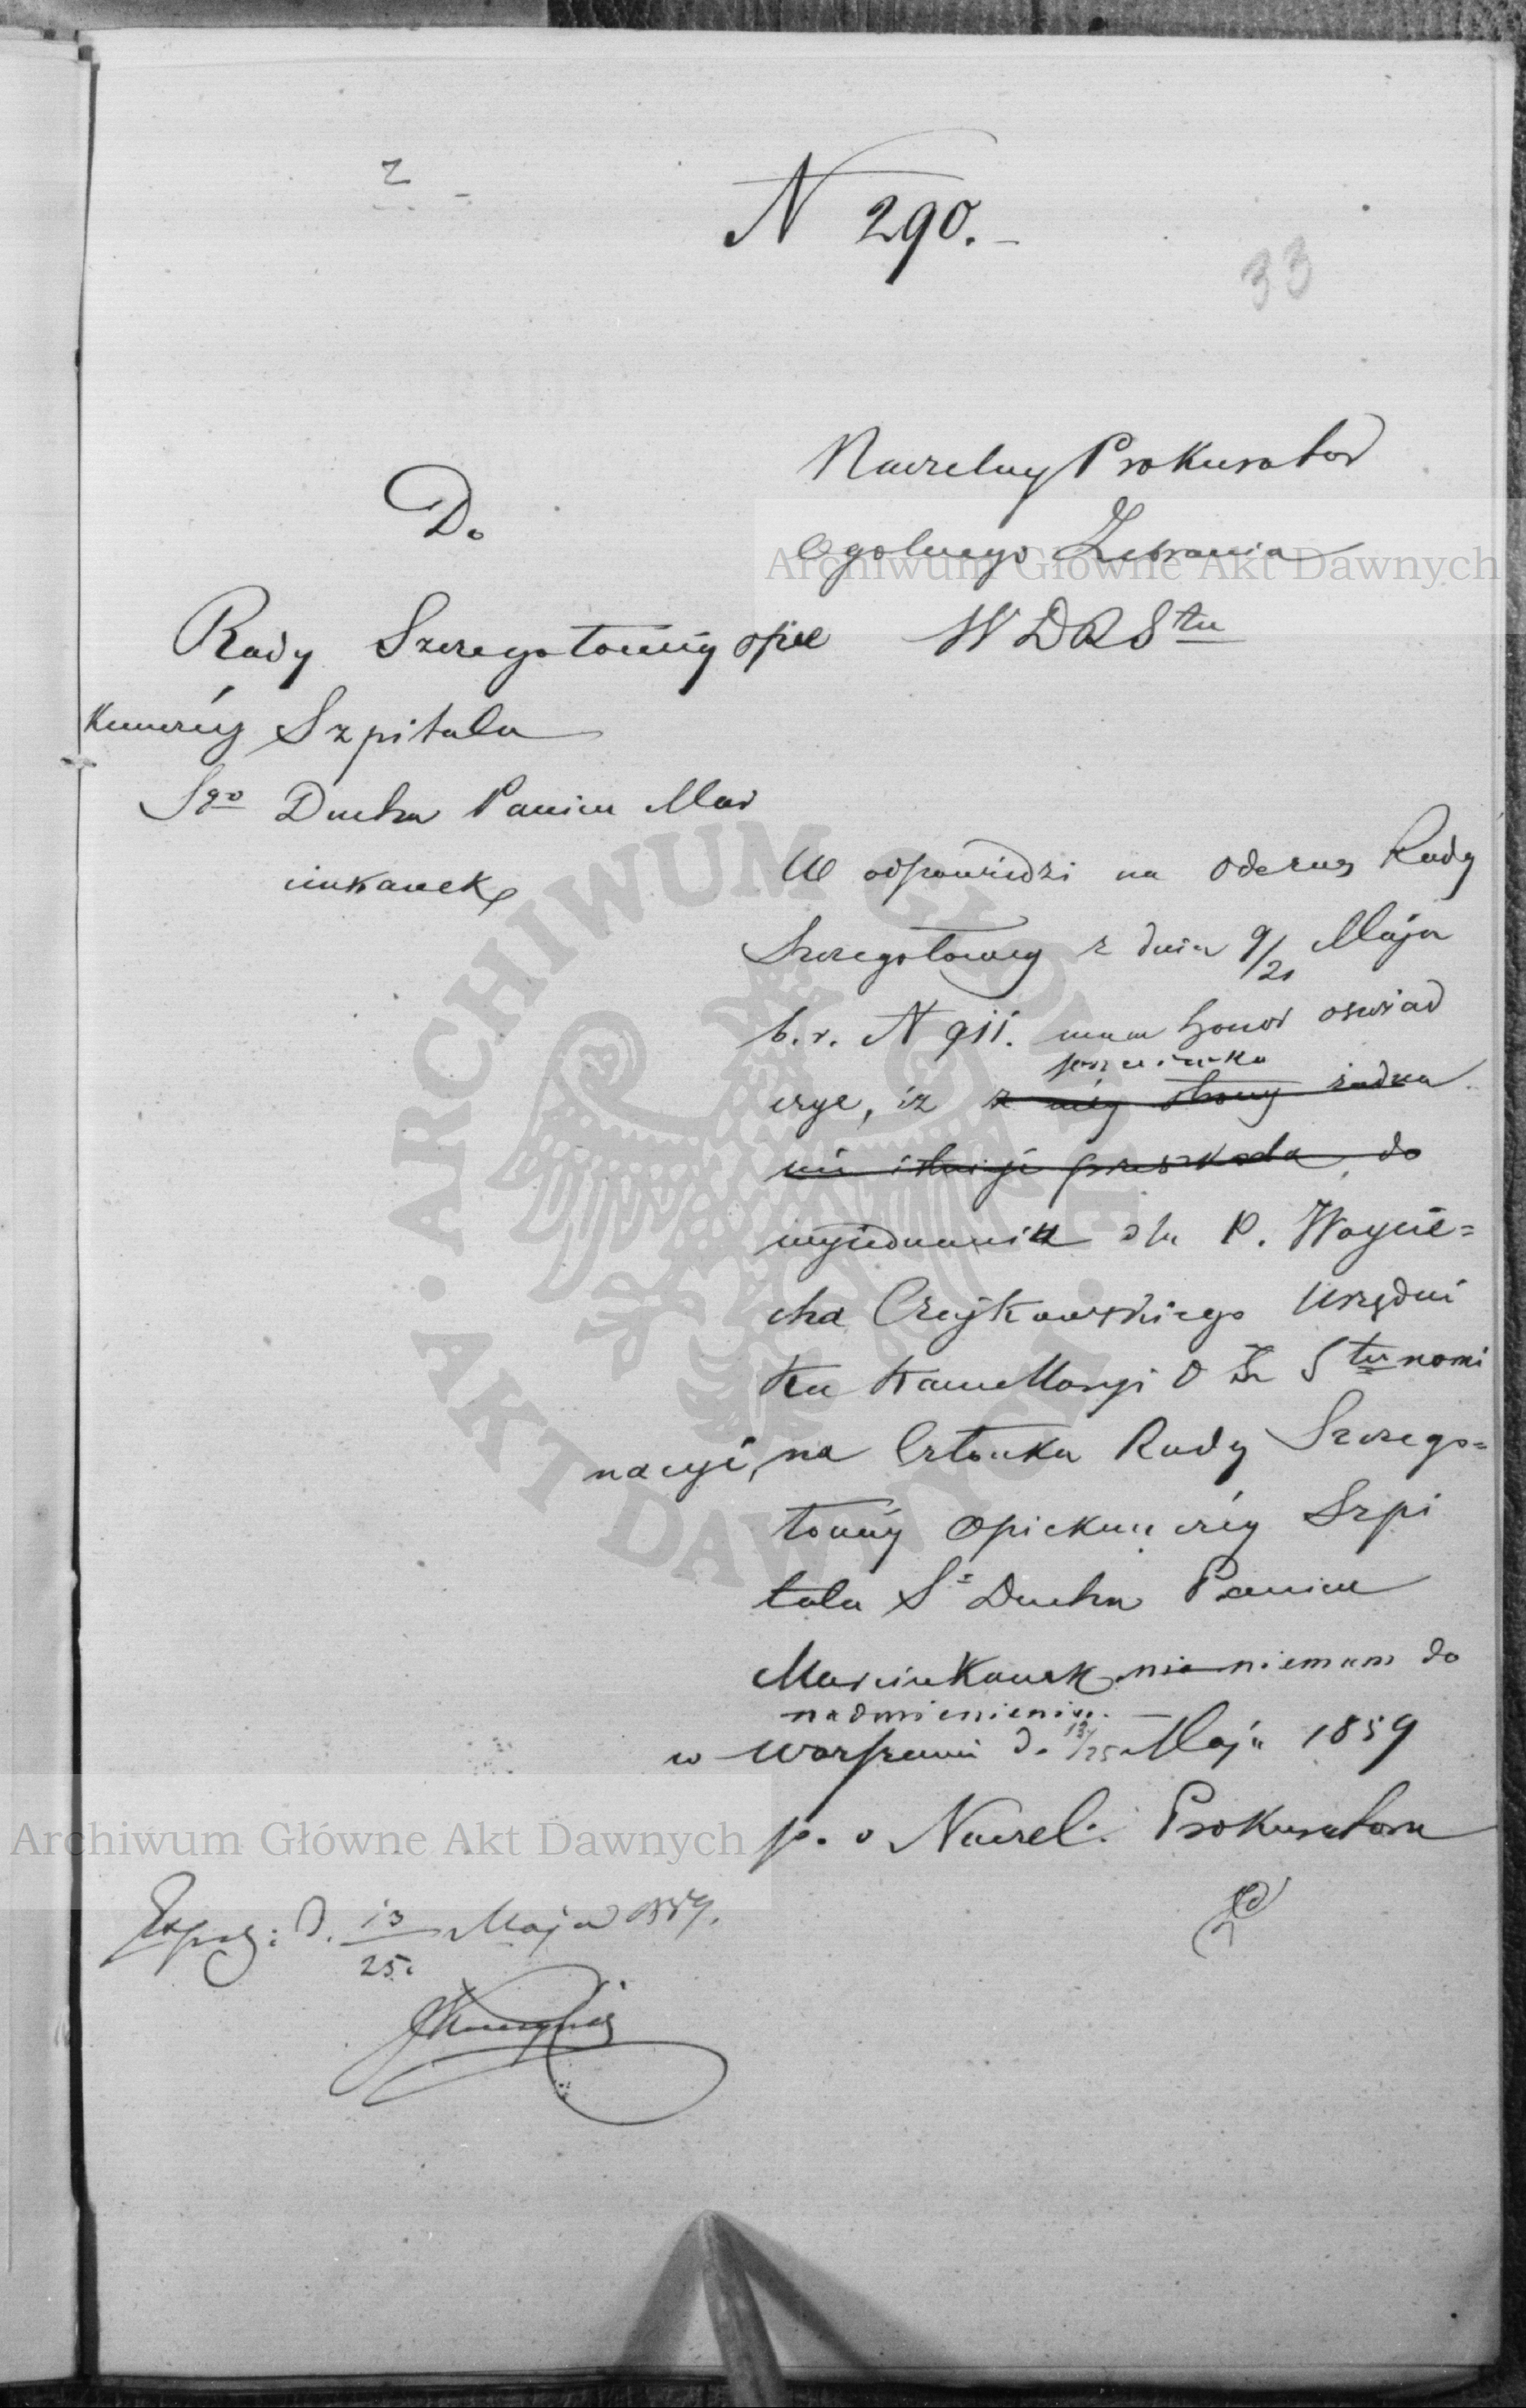 2
N 290.
33
Naczelny Prokurator
Ogolnego Zebrania
W D R S tu
Do
Rady Szczegołowéy opie
kunczéy Szpitala
Sgo Ducha Panien Mar
cinkanek
W odpowiedzi na odezwę Rady
Szczegołowey z dnia 9/21 Maja
b. r. N 911. mam honor oswiad
czyc, iz z méy strony żadna
nie istnieje przeszkoda do
wyiednania dla P. Woycie=
cha Czaykowskiego Urzędni
ka Kancellaryi O Z S tu nomi
nacyi, na Członka Rady Szczego=
łowéy Opiekunczéy Szpi
tala S Ducha Panien
Marcinkanek nie niemam do
nadmienienia.
w Warszawie d. 13/25 Maja 1859
p. o Naczel. Prokuratora
Exped: d. 13/25. Maja 1859.
Archiwum Główne Akt Dawnych
Archiwum Główne Akt Dawnych
ARCHIWUM GŁÓWNE AKT DAWNYCH